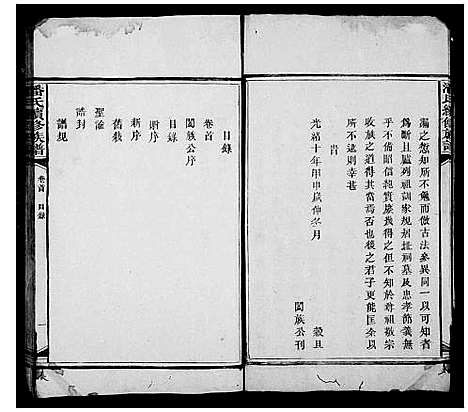 潘氏續修族譜
漏之愆知所不免而倣古法參異同一以可知者
爲斷且臚列祖訓家規朔祉祠墓及忠孝節義無
乎不備亦信乎眞實嫡幾得之但不知於尊祖敬宗
收族之道得其當焉否也後之君子更能匡余以
所不逮則幸甚
旹
光緒十年甲申歲仲冬月 穀旦
闔族公刊
目錄
卷首
闔族公序
目錄
贈序
新序
舊敘
聖諭
誥封
譜規
潘氏續修族譜
卷首 目錄
一